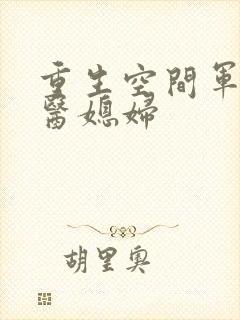 重生空間軍
醫媳婦
胡里奧